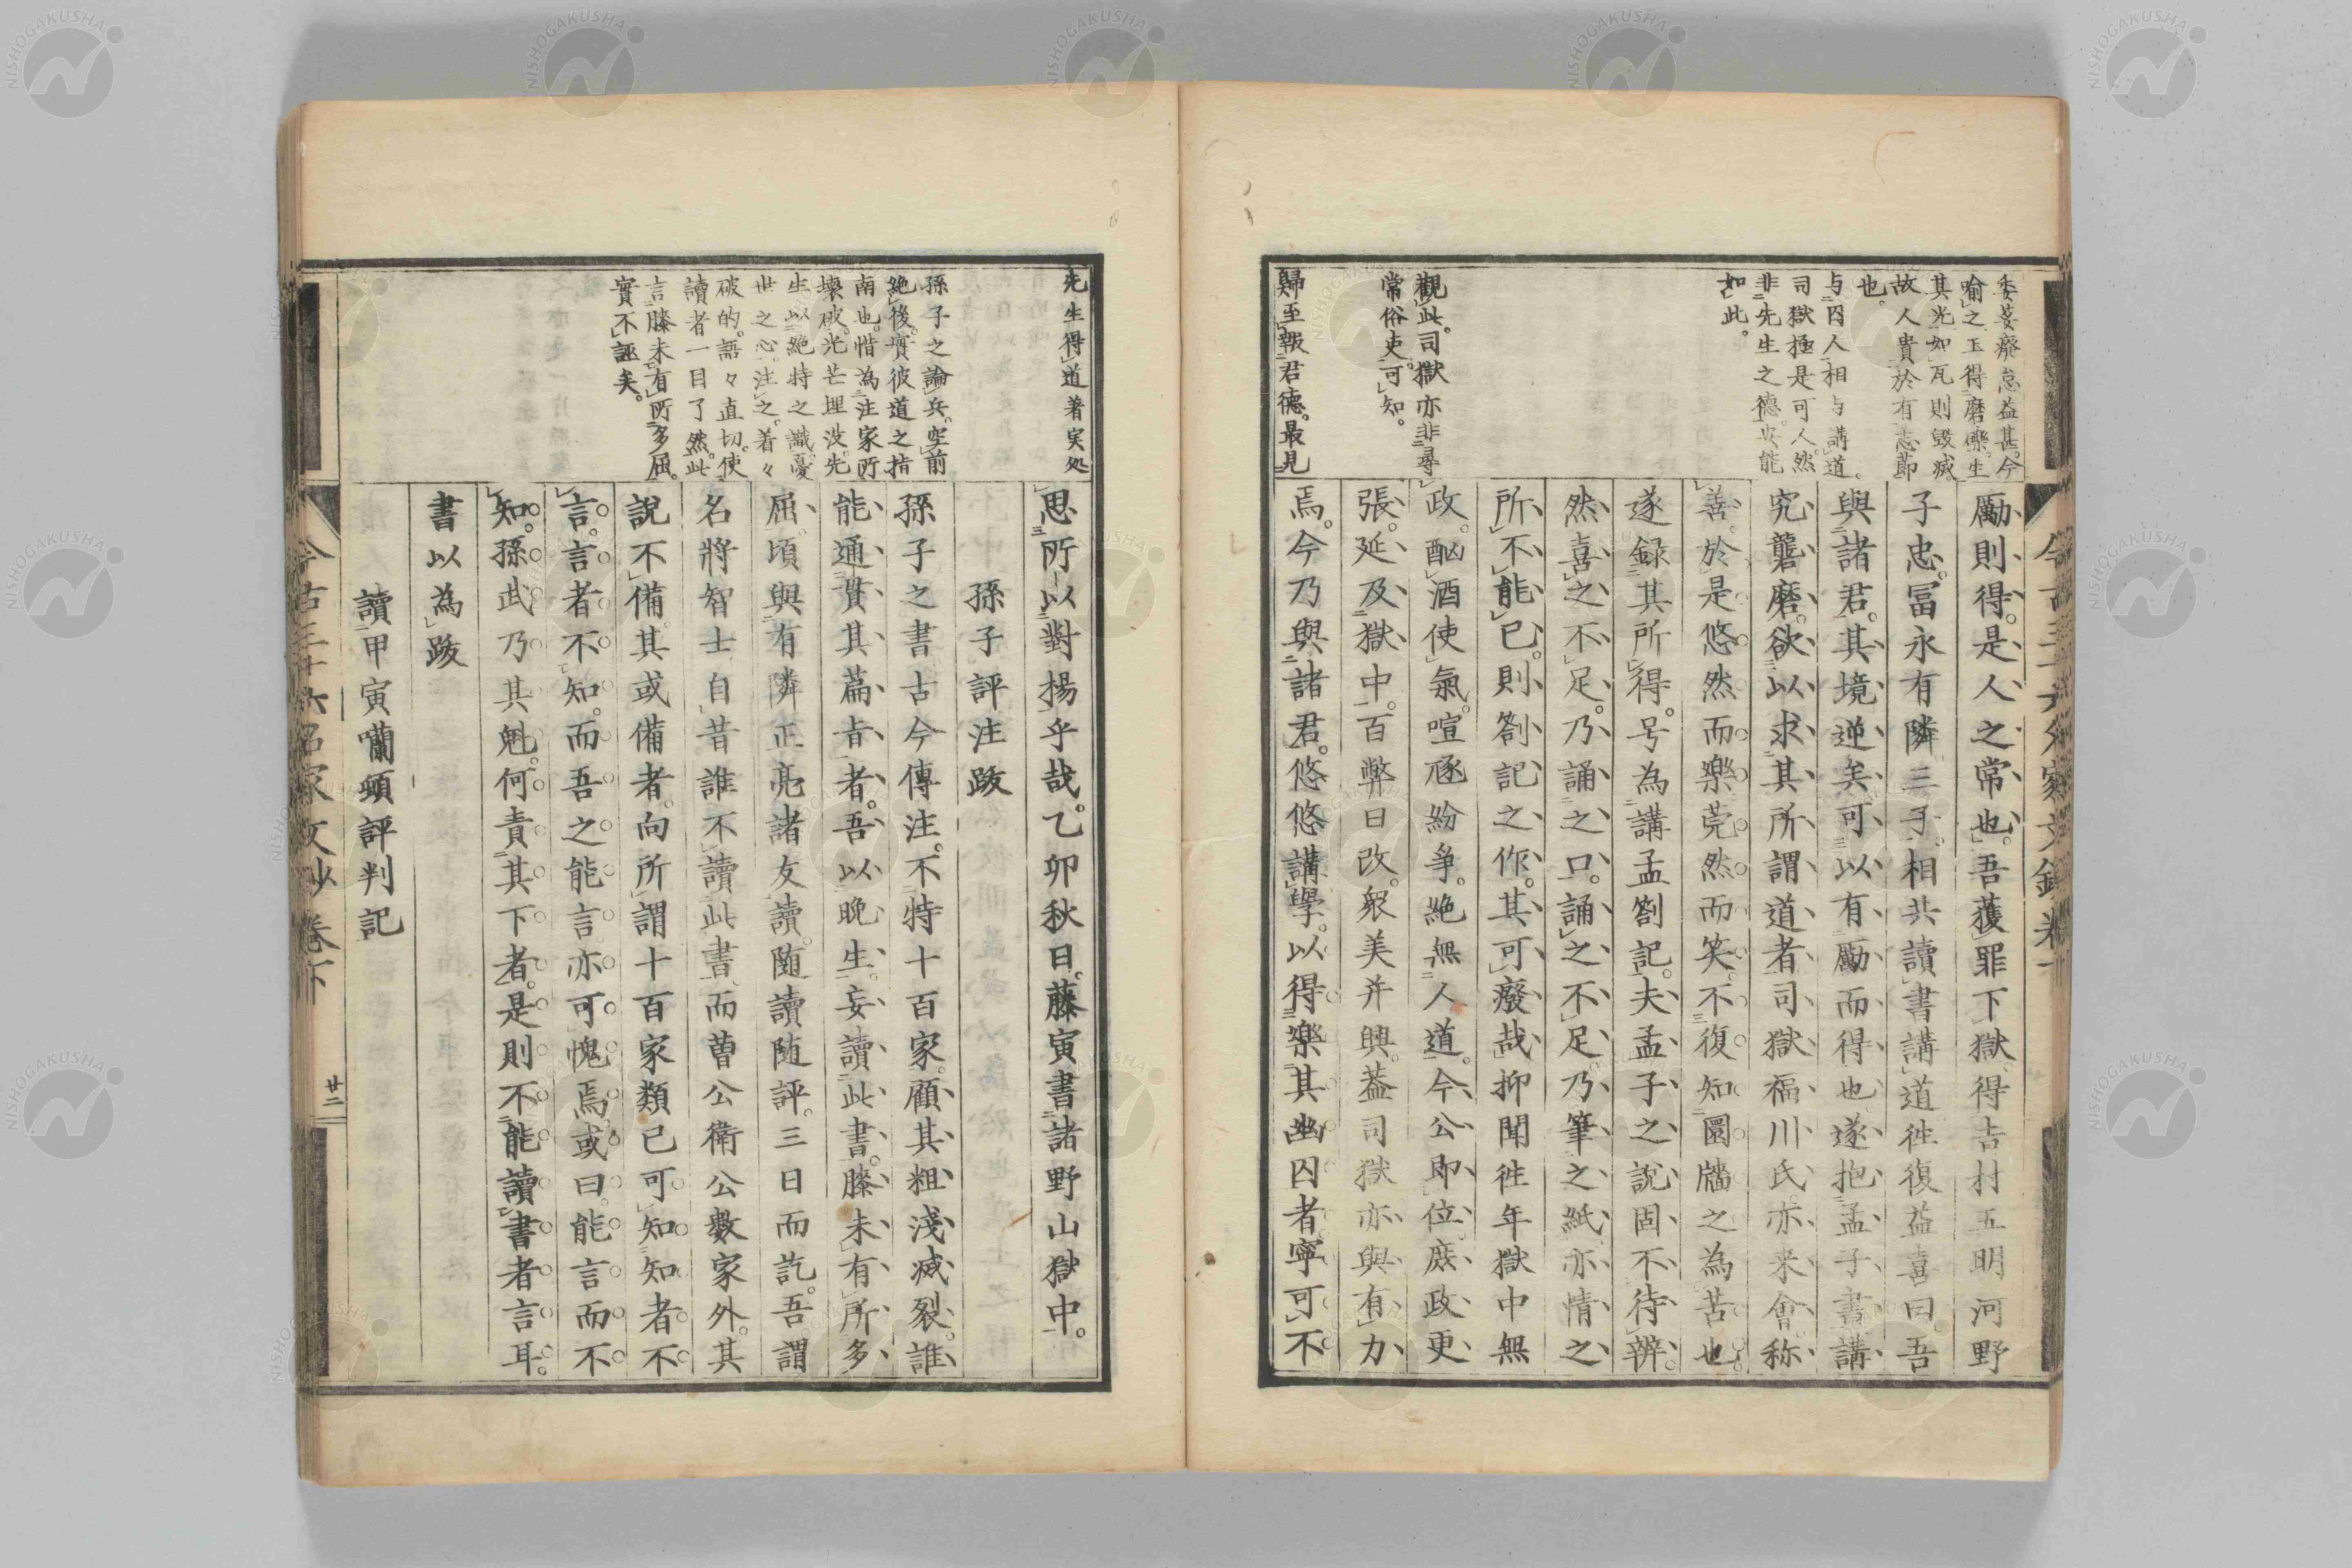 委萎癈怠益甚。今
喩之玉得磨礫。生
其光如瓦則毀滅。
故人貴於有志節
也。
与囚人相与講道。
司獄極是可人。然
非先生之德。安能
如此。
觀此。司獄亦非尋
常俗吏。可知。
歸至報君德。最見
勵則得。是人之常也。吾獲罪下獄得吉村五明河野
子忠。冨永有隣三子。相共讀書講道徃復益喜曰吾
與諸君。其境逆矣可以有勵而得也。遂抱孟子書講
究礱磨。欲以求其所謂道者。司獄福川氏亦来會称
善。於是悠然而樂。莞然而笑。不復知圜牆之為苦也。
遂録其所得。号為講孟劄記。夫孟子之說固不待辨。
然喜之不足。乃誦之口。誦之不足。乃筆之紙亦情之
所不能已。則劄記之作。其可癈哉。抑聞徃年獄中無
政。酗酒使氣。喧豗紛爭。絶無人道。今公即位。庶政更
張。延及獄中。百弊日改。衆美并興。蓋司獄亦與有力
焉。今乃與諸君。悠悠講學。以得樂其幽囚者。寧可不
先生得道著実処
孫子之論兵。空前
絶後。實彼道之指
南也。惜為注家所
壊破。光芒埋没。先
生以絶特之識。憂
世之心。注之。着々
破的。語々直切。使
讀者一目了然。此
言滕未有所多屈。
實不誣矣。
思所以對揚乎哉。乙卯秋日。藤寅書諸野山獄中。
孫子評注跋
孫子之書古今傳注。不特十百家。顧其粗淺滅裂。誰
能通貫其篇旨者。吾以晚生。妄讀此書。滕未有所多
屈。頃與有隣正亮諸友讀。随讀随評。三日而訖。吾謂
名將智士自昔誰不讀此書。而曹公衛公數家外。其
說不備。其或備者。向所謂十百家類已可知。知者不
言。言者不知。而吾之能言亦可愧焉。或曰。能言而不
知。孫武乃其魁。何責其下者。是則不能讀書者言耳。
書以為跋
讀甲寅囒頓評判記
廿二